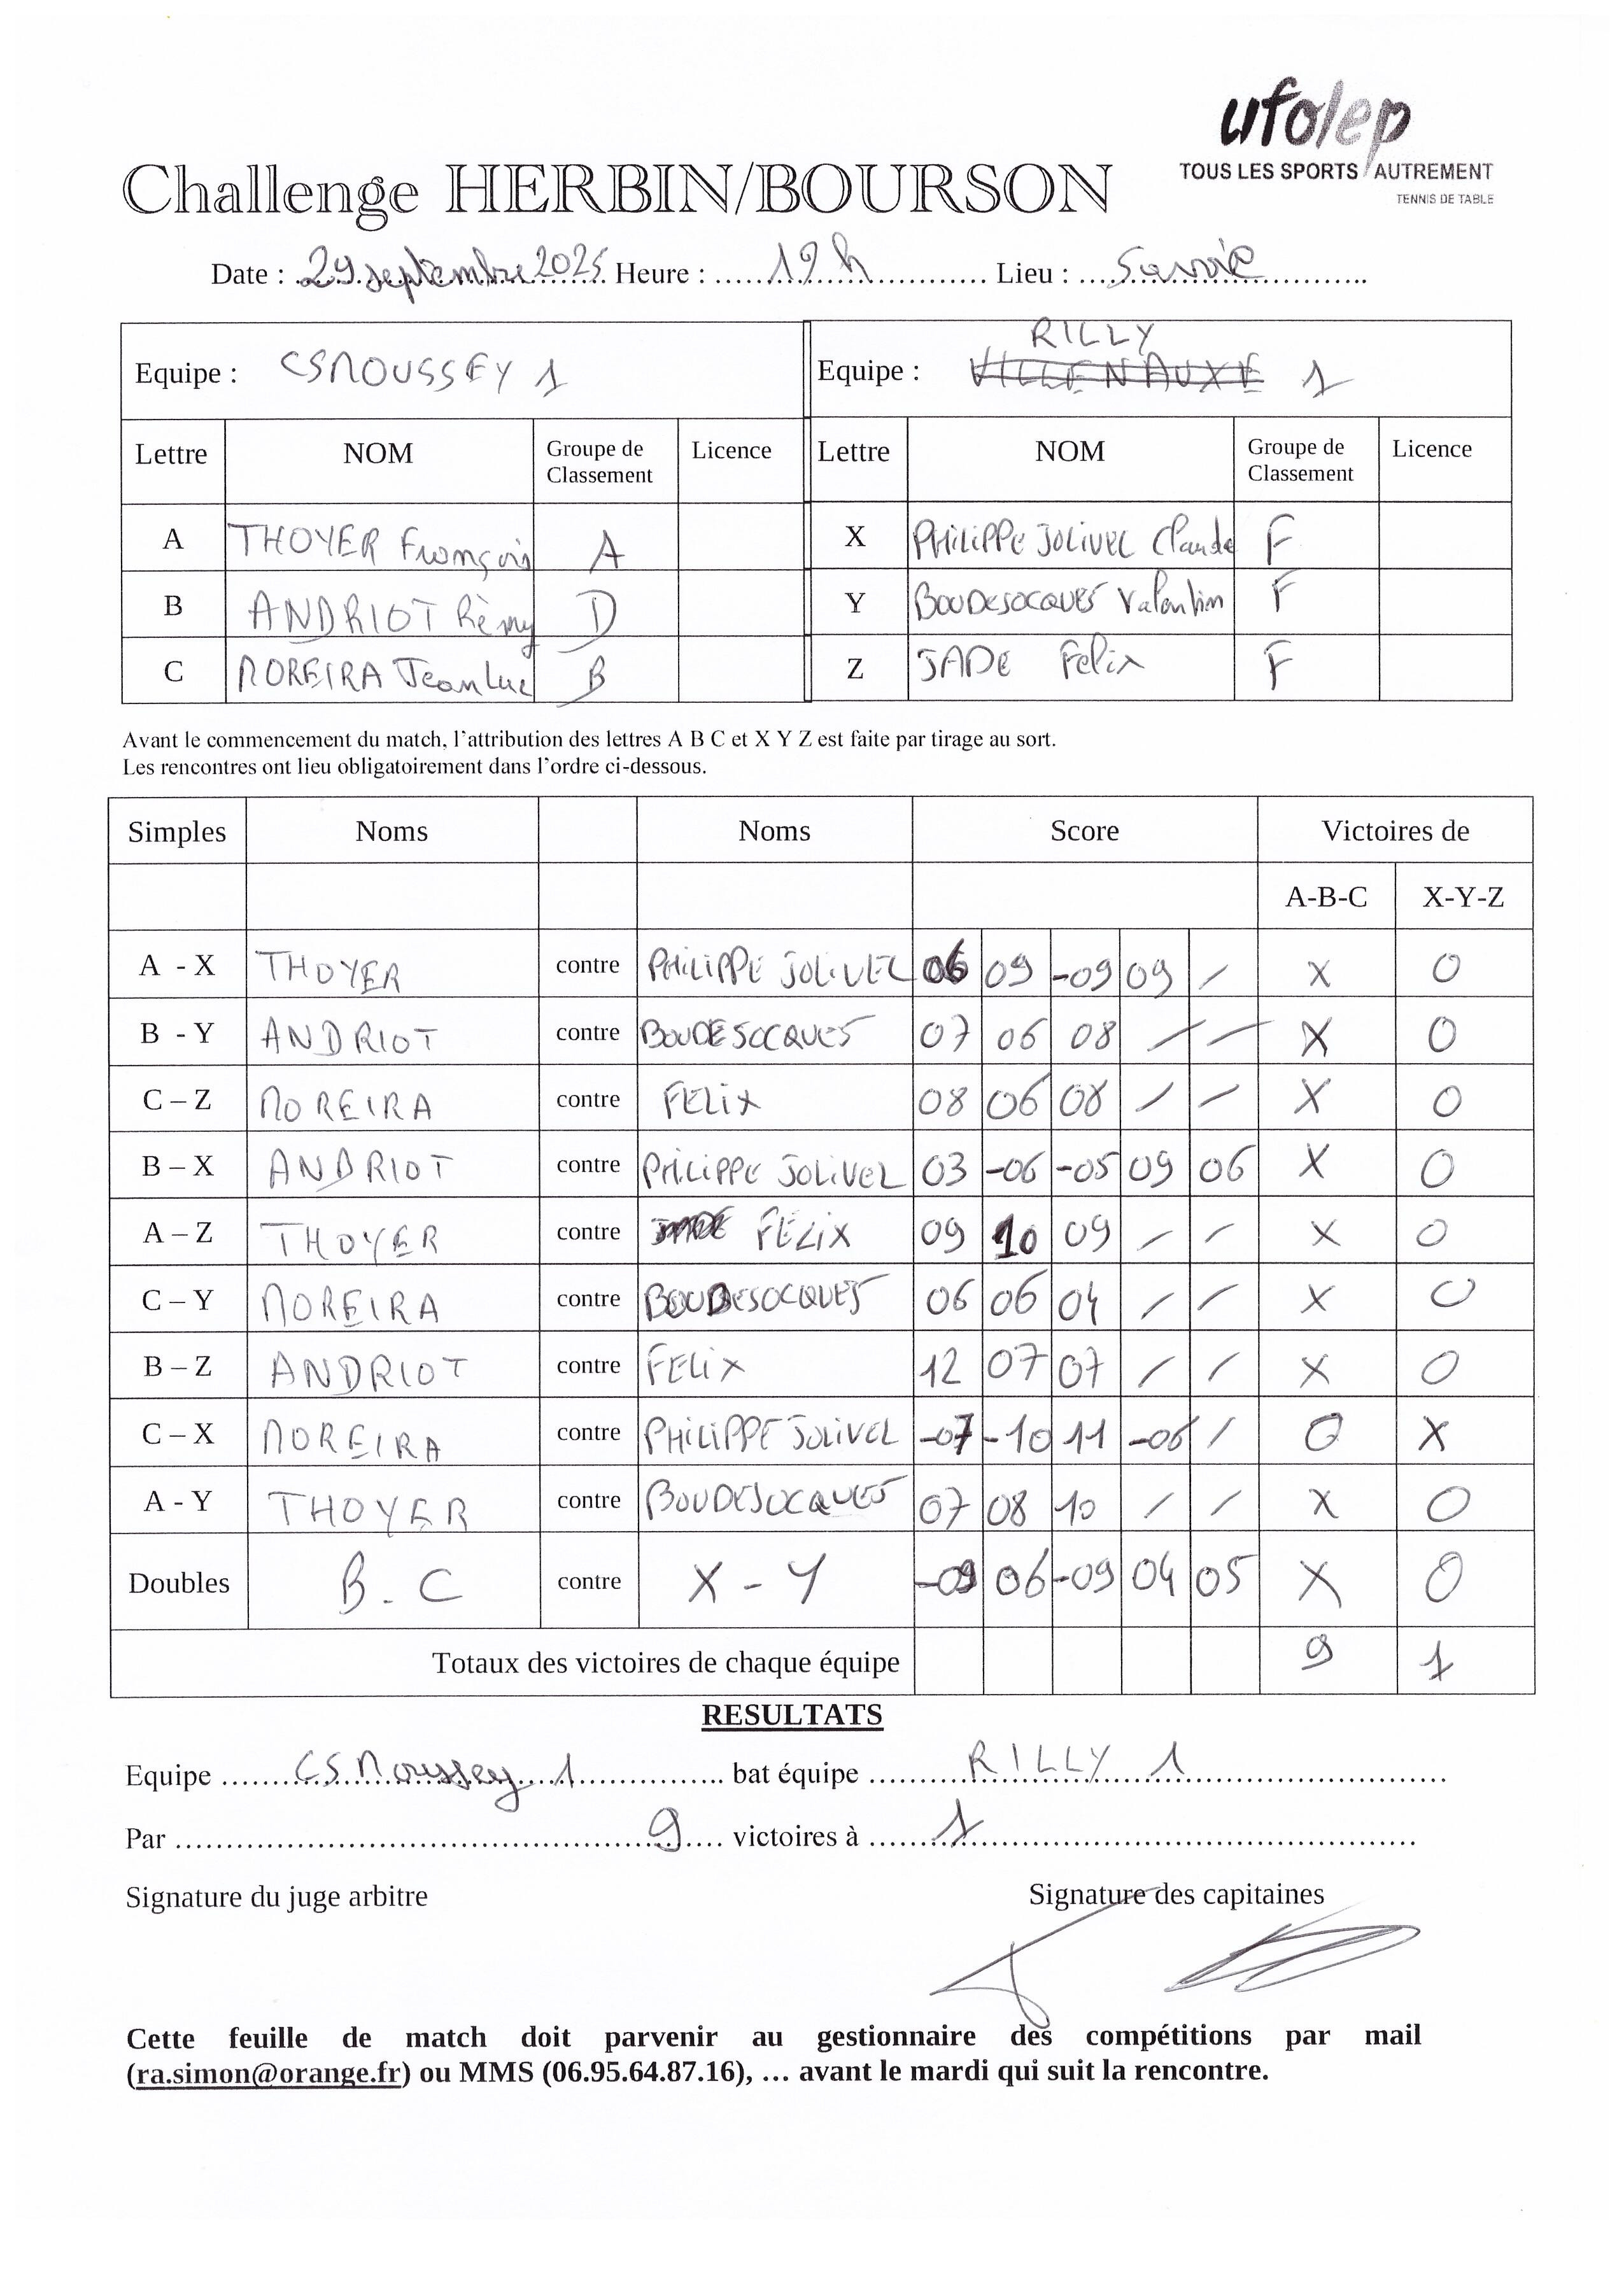 ufolep
TOUS LES SPORTS / AUTREMENT
TENNIS DE TABLE
Challenge HERBIN/BOURSON
Date : 29 septembre 2025 Heure : 19 h Lieu : Savoie
RILLY
Equipe : CS NOUSSEY 1 Equipe : VILLENAUXE 1
Lettre NOM Groupe de Classement Licence Lettre NOM Groupe de Classement Licence
A THOYER François A X PHILIPPE JOLIVEL Claude F
B ANDRIOT Rèmy D Y BOUDESOCQUES Valentin F
C NOREIRA Jean Luc B Z JADE Felix F
Avant le commencement du match, l'attribution des lettres A B C et X Y Z est faite par tirage au sort.
Les rencontres ont lieu obligatoirement dans l'ordre ci-dessous.
Simples Noms Noms Score Victoires de
A-B-C X-Y-Z
A - X THOYER contre PHILIPPE JOLIVEL 06 09 -09 09 / X O
B - Y ANDRIOT contre BOUDESOCQUES 07 06 08 / / X O
C – Z NOREIRA contre FELIX 08 06 08 / / X O
B – X ANDRIOT contre PHILIPPE JOLIVEL 03 -06 -05 09 06 X O
A – Z THOYER contre FELIX 09 10 09 / / X O
C – Y NOREIRA contre BOUDESOCQUES 06 06 04 / / X O
B – Z ANDRIOT contre FELIX 12 07 07 / / X O
C – X NOREIRA contre PHILIPPE JOLIVEL -07 -10 11 -06 / O X
A - Y THOYER contre BOUDESOCQUES 07 08 10 / / X O
Doubles B - C contre X - Y -09 06 -09 04 05 X O
Totaux des victoires de chaque équipe 9 1
RESULTATS
Equipe CS Noussey 1 bat équipe RILLY 1
Par 9 victoires à 1
Signature du juge arbitre Signature des capitaines
Cette feuille de match doit parvenir au gestionnaire des compétitions par mail
(ra.simon@orange.fr) ou MMS (06.95.64.87.16), … avant le mardi qui suit la rencontre.